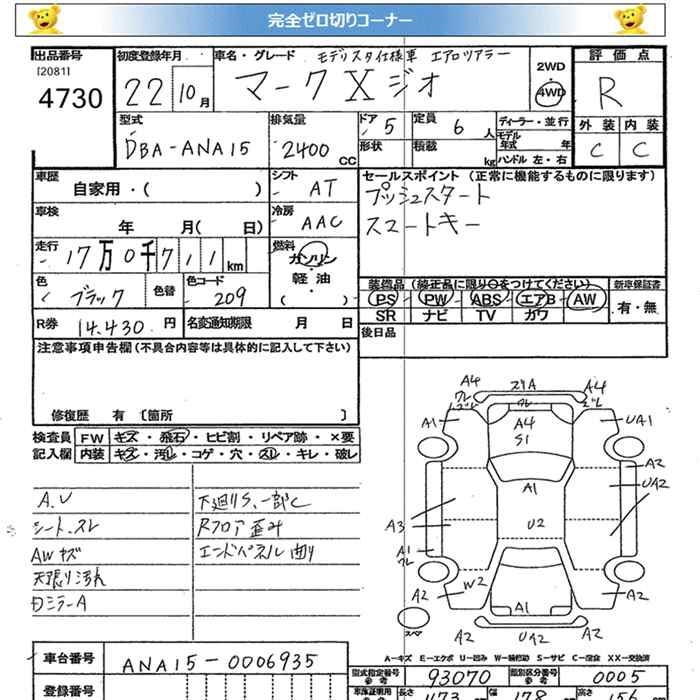 完全ゼロ切りコーナー
出品番号 初度登録年月 車名・グレード モデリスタ仕様車 エアロツアラー 評価点
[2081]
4730 22 10月 マークXジオ 2WD・4WD R
型式 排気量 ドア 5 定員 6 人 ディーラー・並行 外装 内装
DBA-ANA15 2400 CC 形状 積載 kg モデル年式 年 C C
ハンドル 左・右
車歴 シフト セールスポイント (正常に機能するものに限ります)
自家用・( ) AT プッシュスタート
車検 冷房 スマートキー
年 月( 日) AAC
走行 燃料
17万0千711km ガソリン・軽油・( )
色 色替 色コード 装備品 (純正品に限り○をつけてください) 新車保証書
ブラック 209 PS PW ABS エアB AW 有・無
SR ナビ TV カワ
R券 14.430 円 名変通知期限 月 日 後日品
注意事項申告欄 (不具合内容等は具体的に記入して下さい)
修復歴 有 〔箇所 〕
検査員 FW キズ・飛石・ヒビ割・リペア跡・×要
記入欄 内装 キズ・汚れ・コゲ・穴・スレ・キレ・破レ
A.V 下廻りS、一部C
シート.スレ Rフロア歪み
AWキズ エンドパネル曲り
天張り汚れ
ミラーA
A4 ズリA A4
ワレ ズレ ワレ ズレ
A1 A4 UA1
S1
A2
A1 UA2
A3 U2
A1
ワレ
W2
A2 A1 A2
スペア
A2 UA2 A2
A-キズ E-エクボ U-凹み W-補修跡 S-サビ C-腐食 XX-交換済
車台番号 ANA15-0006935
型式指定番号 参考 93070 類別区分番号 参考 0005
登録番号 車庫証明用 長さ 473 幅 178 高さ 156